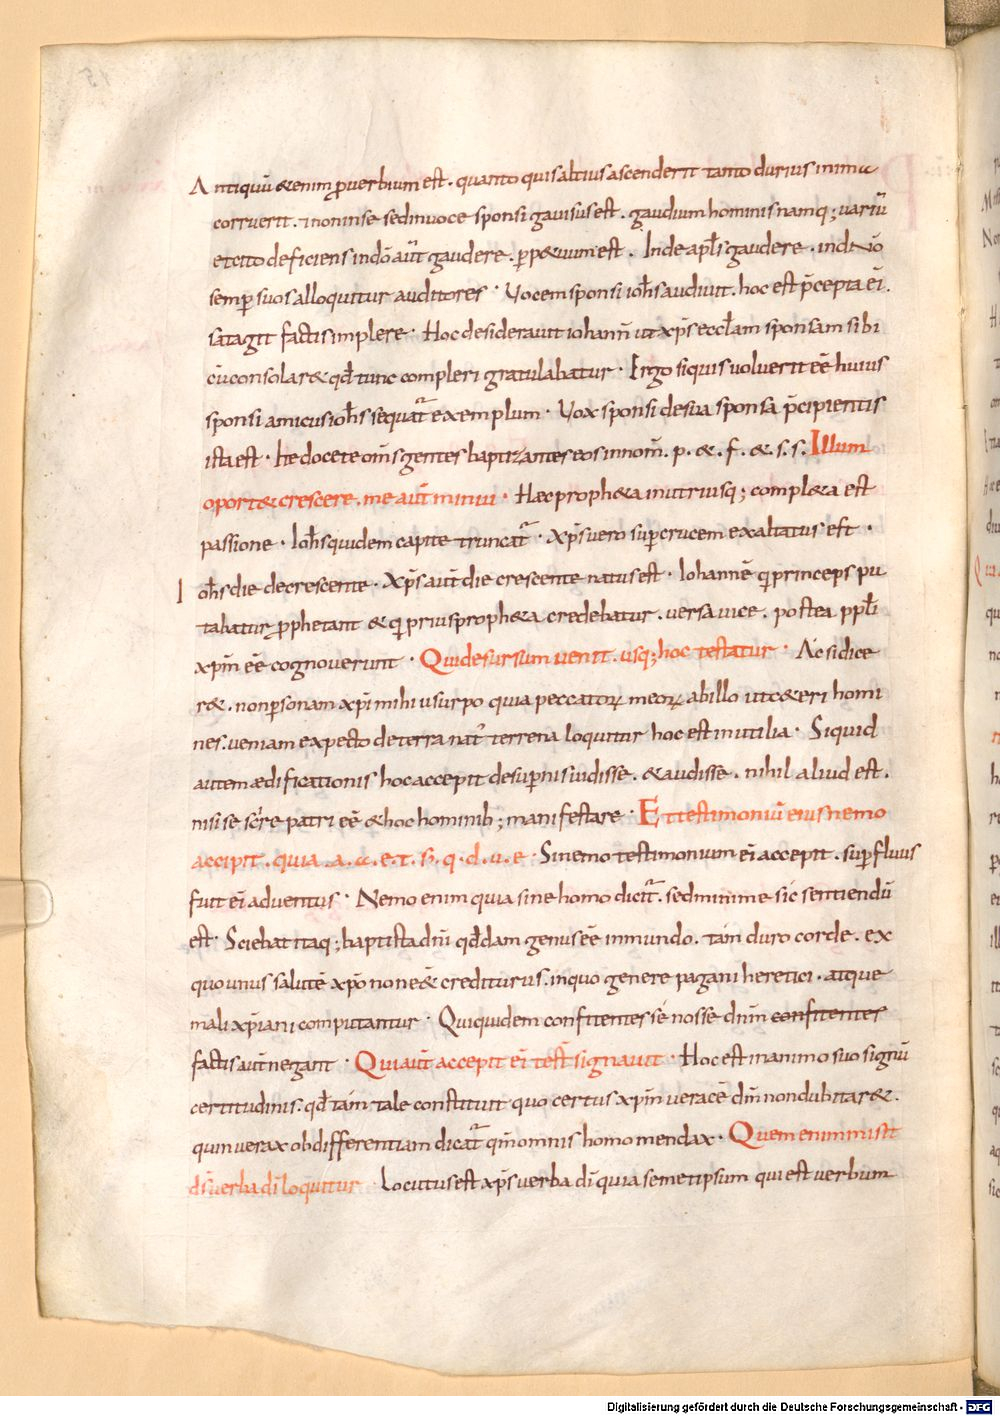 Antiquū &enim ꝓverbium est. quanto quis altius ascenderit tanto durius in ima
corruerit. & non in se sed in voce sponsi gavisus est. gaudium hominis namq; variū
et cito deficiens in dn̄o aut̄ gaudere. ꝑp&uum est. Inde apl̄s gaudere. in dn̄o
semꝑ suos alloquitur auditores. Vocem sponsi ioħs audivit. hoc est p̄cepta ei᷒.
satagit factis implere. Hoc desideravit iohann̄ ut xp̄s eccl̄am sponsam sibi
cū consolar& qd̄ tunc compleri gratulabatur. Ergo siquis voluerit eē huius
sponsi amicus ioħs sequat᷑ exemplum. Vox sponsi de sua sponsa p̄cipientis
ista est. Ite docete om̄s gentes baptizantes eos in nom̄. p. &. f. &. s. s. Illum
oport& crescere. me aut̄ minui. Haec proph&a in utriusq; compl&a est
passione. Ioħs quidem capite truncat᷑. Xp̄s vero suꝑ crucem exaltatus est.
Ioħs die decrescente. Xp̄s aut̄ die crescente natus est. Iohannē qͥ princeps pu
tabatur ꝓphetant & qͥ prius proph&a credebatur. versa vice. postea ppl̄i
xp̄m eē cognoverunt. Qui desursum venit. usq; hoc testatur. Ac si dice
r&. non ꝑsonam xp̄i mihi usurpo quia peccatoꝝ meoꝝ ab illo ut c&eri homi
nes. veniam expecto de terra nat᷒ terrena loquitur hoc est inutilia. Siquid
autem ædificationis hoc accepit desuꝑnis vidisse. & audisse. nihil aliud est.
nisi se scire patri eē & hoc hominib; manifestare. Et testimoniū eius nemo
accipit. quia .a. c. e. t. s. q. d. v. e. Si nemo testimonium ei᷒ accepit. suꝑfluus
fuit ei᷒ adventus. Nemo enim quia sine homo dicit᷑. sed minime sic sentiendū
est. Sciebat itaq; baptista dn̄i qd̄dam genus eē in mundo. tam duro corde. ex
quo unus salutē xp̄o non e& crediturus. in quo genere pagani heretici. atque
mali xp̄iani computantur. Qui quidem confitentes se nosse dn̄m confitentes
factis aut̄ negant. Qui aut̄ accepit ei᷒ test̄ signavit. Hoc est in animo suo signū
certitudinis. qd̄ tam tale constituit quo certus xp̄m veracē dn̄m non dubitar&.
quin verax ob differentiam dicat᷑ qm̄ omnis homo mendax. Quem enim misit
ds̄ verba di᷒ loquitur. Locutus est xp̄s verba di᷒ quia semetipsum qui est verbum
Digitalisierung gefördert durch die Deutsche Forschungsgemeinschaft - DFG